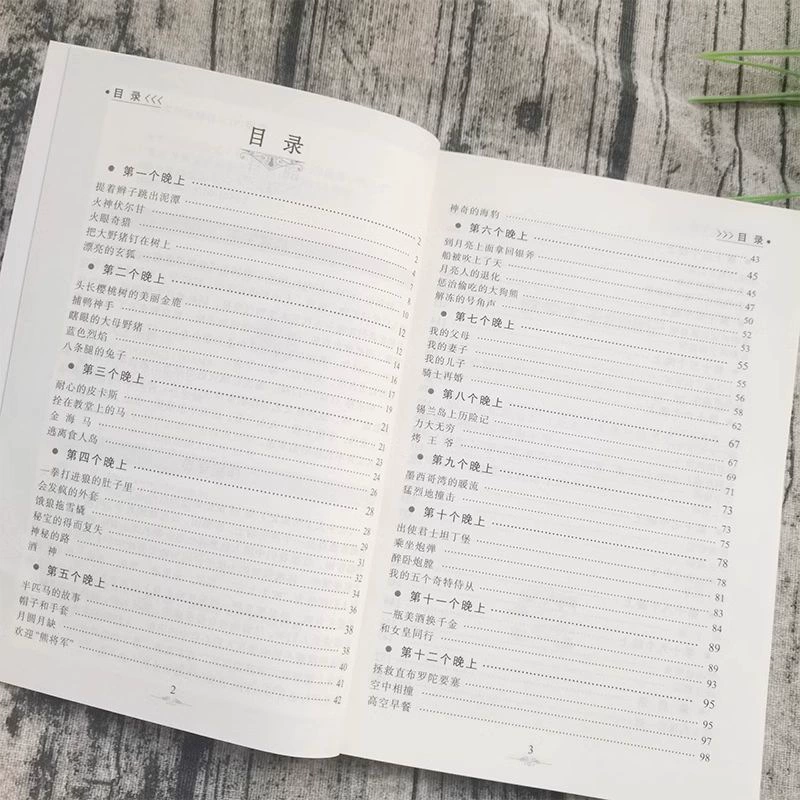 目 录
目 录
第一个晚上 2
提着辫子跳出泥潭 2
火神伏尔甘 4
火眼奇猎 7
把大野猪钉在树上 8
漂亮的玄狐 10
第二个晚上 12
头长樱桃树的美丽金鹿 12
捕鸭神手 14
瞎眼的大母野猪 16
蓝色烈焰 17
八条腿的兔子 19
第三个晚上 21
耐心的皮卡斯 21
拴在教堂上的马 24
金 海 马 25
逃离食人岛 26
第四个晚上 28
一拳打进狼的肚子里 28
会发疯的外套 29
饿狼拖雪橇 31
秘宝的得而复失 32
神秘的路 34
酒 神 36
第五个晚上 38
半匹马的故事 38
帽子和手套 40
月圆月缺 41
欢迎“熊将军” 42
2
目 录
神奇的海豹 43
第六个晚上 45
到月亮上面拿回银斧 45
船被吹上了天 47
月亮人的退化 50
惩治偷吃的大狗熊 52
解冻的号角声 53
第七个晚上 55
我的父母 55
我的妻子 56
我的儿子 58
骑士再婚 62
第八个晚上 67
锡兰岛上历险记 67
力大无穷 69
烤 王 爷 71
第九个晚上 73
墨西哥湾的暖流 73
猛烈地撞击 75
第十个晚上 78
出使君士坦丁堡 78
乘坐炮弹 81
醉卧炮膛 83
我的五个奇特侍从 84
第十一个晚上 89
一瓶美酒换千金 89
和女皇同行 93
第十二个晚上 95
拯救直布罗陀要塞 95
空中相撞 97
高空早餐 98
3